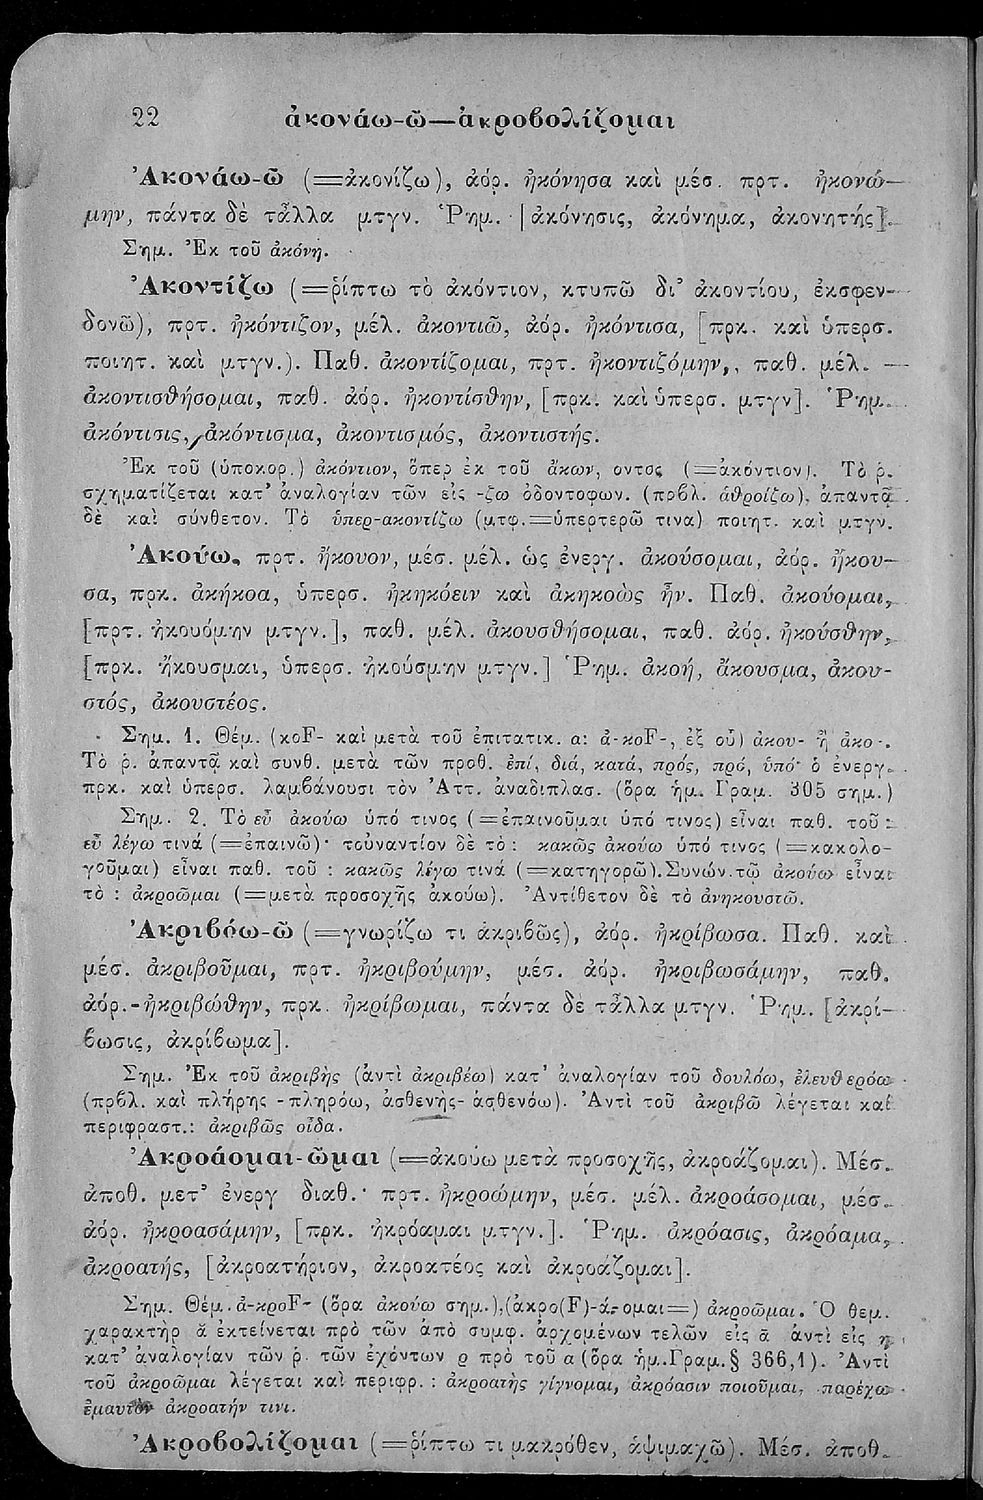 22 ἀκονάω-ῶ—ἀκροβολίζομαι
Ἀκονάω-ῶ (=ἀκονίζω), ἀόρ. ἠκόνησα καὶ μέσ. πρτ. ἠκονώ-
μην, πάντα δὲ τἆλλα μτγν. Ῥημ. [ἀκόνησις, ἀκόνημα, ἀκονητής].
Σημ. Ἐκ τοῦ ἀκόνη.
Ἀκοντίζω (=ῥίπτω τὸ ἀκόντιον, κτυπῶ δι' ἀκοντίου, ἐκσφεν-
δονῶ), πρτ. ἠκόντιζον, μέλ. ἀκοντιῶ, ἀόρ. ἠκόντισα, [πρκ. καὶ ὑπερσ.
ποιητ. καὶ μτγν.). Παθ. ἀκοντίζομαι, πρτ. ἠκοντιζόμην,. παθ. μέλ. —
ἀκοντισθήσομαι, παθ. ἀόρ. ἠκοντίσθην, [πρκ. καὶ ὑπερσ. μτγν]. Ῥημ.
ἀκόντισις, ἀκόντισμα, ἀκοντισμός, ἀκοντιστής.
Ἐκ τοῦ (ὑποκορ.) ἀκόντιον, ὅπερ ἐκ τοῦ ἄκων, οντος (=ἀκόντιον). Τὸ ῥ.
σχηματίζεται κατ' ἀναλογίαν τῶν εἰς -ζω ὀδοντοφων. (πρβλ. ἀθροίζω), ἀπαντᾷ
δὲ καὶ σύνθετον. Τὸ ὑπερ-ακοντίζω (μτφ.=ὑπερτερῶ τινα) ποιητ. καὶ μτγν.
Ἀκούω, πρτ. ἤκουον, μέσ. μέλ. ὡς ἐνεργ. ἀκούσομαι, ἀόρ. ἤκου-
σα, πρκ. ἀκήκοα, ὑπερσ. ἠκηκόειν καὶ ἀκηκοὼς ἦν. Παθ. ἀκούομαι,
[πρτ. ἠκουόμην μτγν.], παθ. μέλ. ἀκουσθήσομαι, παθ. ἀόρ. ἠκούσθην,
[πρκ. ἤκουσμαι, ὑπερσ. ἠκούσμην μτγν.] Ῥημ. ἀκοή, ἄκουσμα, ἀκου-
στός, ἀκουστέος.
Σημ. 1. Θέμ. (κοF- καὶ μετὰ τοῦ ἐπιτατικ. α: ἀ-κοF-, ἐξ οὗ) ἀκου- ἢ ἀκο-.
Τὸ ῥ. ἀπαντᾷ καὶ συνθ. μετὰ τῶν προθ. ἐπί, διά, κατά, πρός, πρό, ὑπό· ὁ ἐνεργ.
πρκ. καὶ ὑπερσ. λαμβάνουσι τὸν Ἀττ. ἀναδιπλασ. (ὅρα ἡμ. Γραμ. 305 σημ.)
Σημ. 2. Τὸ εὖ ἀκούω ὑπό τινος (=ἐπαινοῦμαι ὑπό τινος) εἶναι παθ. τοῦ:
εὖ λέγω τινά (=ἐπαινῶ)· τοὐναντίον δὲ τὸ: κακῶς ἀκούω ὑπό τινος (=κακολο-
γοῦμαι) εἶναι παθ. τοῦ : κακῶς λέγω τινά (=κατηγορῶ). Συνών. τῷ ἀκούω εἶναι
τὸ : ἀκροῶμαι (=μετὰ προσοχῆς ἀκούω). Ἀντίθετον δὲ τὸ ἀνηκουστῶ.
Ἀκριβόω-ῶ (=γνωρίζω τι ἀκριβῶς), ἀόρ. ἠκρίβωσα. Παθ. καὶ
μέσ. ἀκριβοῦμαι, πρτ. ἠκριβούμην, μέσ. ἀόρ. ἠκριβωσάμην, παθ.
ἀόρ.-ἠκριβώθην, πρκ. ἠκρίβωμαι, πάντα δὲ τἆλλα μτγν. Ῥημ. [ἀκρί-
βωσις, ἀκρίβωμα].
Σημ. Ἐκ τοῦ ἀκριβὴς (ἀντὶ ἀκριβέω) κατ' ἀναλογίαν τοῦ δουλόω, ἐλευθερόω
(πρβλ. καὶ πλήρης -πληρόω, ἀσθενής- ἀσθενόω). Ἀντὶ τοῦ ἀκριβῶ λέγεται καὶ
περιφραστ.: ἀκριβῶς οἶδα.
Ἀκροάομαι-ῶμαι (=ἀκούω μετὰ προσοχῆς, ἀκροάζομαι). Μέσ.
ἀποθ. μετ' ἐνεργ διαθ.· πρτ. ἠκροώμην, μέσ. μέλ. ἀκροάσομαι, μέσ.
ἀόρ. ἠκροασάμην, [πρκ. ἠκρόαμαι μτγν.]. Ῥημ. ἀκρόασις, ἀκρόαμα,
ἀκροατής, [ἀκροατήριον, ἀκροατέος καὶ ἀκροάζομαι].
Σημ. Θέμ. ἀ-κροF- (ὅρα ἀκούω σημ.),(ἀκρο(F)-ά-ομαι=) ἀκροῶμαι. Ὁ θεμ.
χαρακτὴρ ᾰ ἐκτείνεται πρὸ τῶν ἀπὸ συμφ. ἀρχομένων τελῶν εἰς ᾱ ἀντὶ εἰς η,
κατ' ἀναλογίαν τῶν ῥ. τῶν ἐχόντων ρ πρὸ τοῦ α (ὅρα ἡμ. Γραμ. § 366,1). Ἀντὶ
τοῦ ἀκροῶμαι λέγεται καὶ περιφρ. : ἀκροατὴς γίγνομαι, ἀκρόασιν ποιοῦμαι, παρέχω
ἐμαυτὸν ἀκροατήν τινι.
Ἀκροβολίζομαι (=ῥίπτω τι μακρόθεν, ἁψιμαχῶ). Μέσ. ἀποθ.